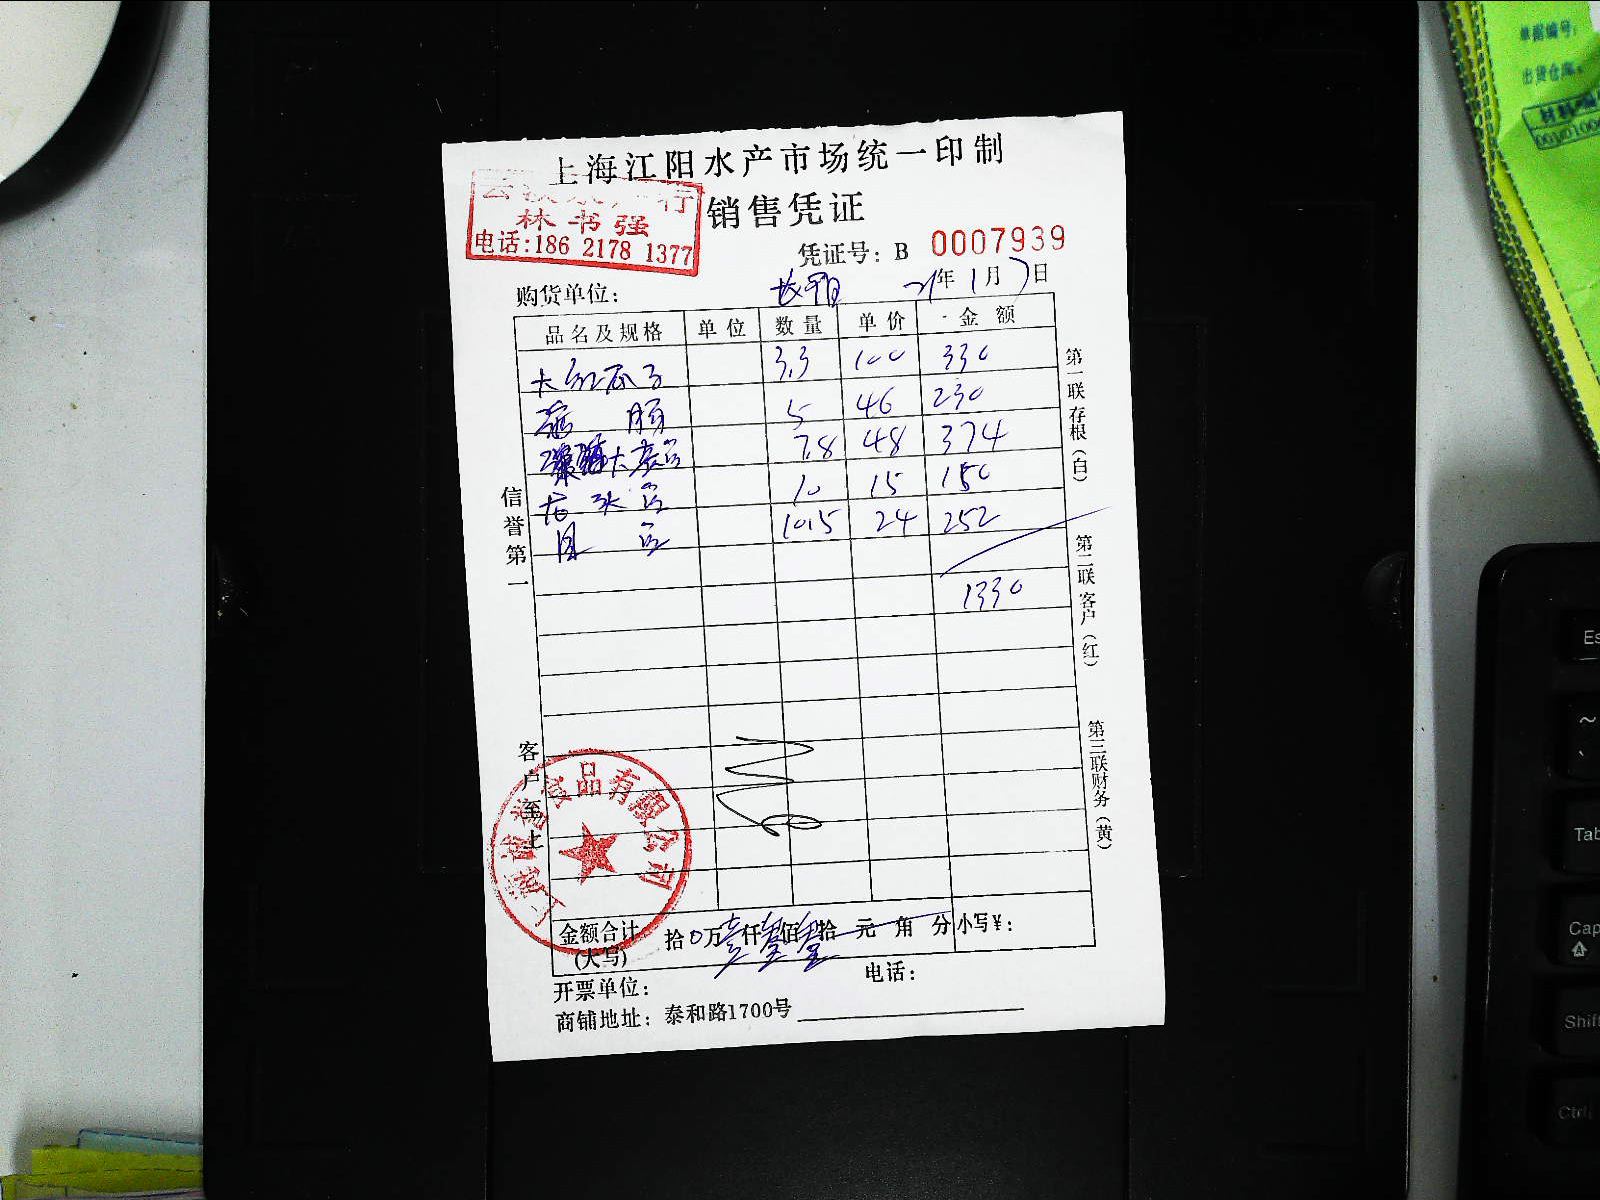 上海江阳水产市场统一印制
销售凭证
林书强
电话:186 2178 1377
凭证号: B 0007939
21年1月7日
购货单位:
品名及规格 单位 数量 单价 金额
大红瓜子 3.3 100 330
5 46 230
7.8 48 374
龙头 10 15 150
10.5 24 252
1330
信誉第一
客户至上
第一联存根(白)
第二联客户(红)
第三联财务(黄)
食品有限公司
金额合计(大写) 拾0万壹仟叁佰叁拾元角分 小写¥:
开票单位: 电话:
商铺地址: 泰和路1700号
单据编号:
出货仓库:
Es
~
Tab
Cap
Shift
Ctrl